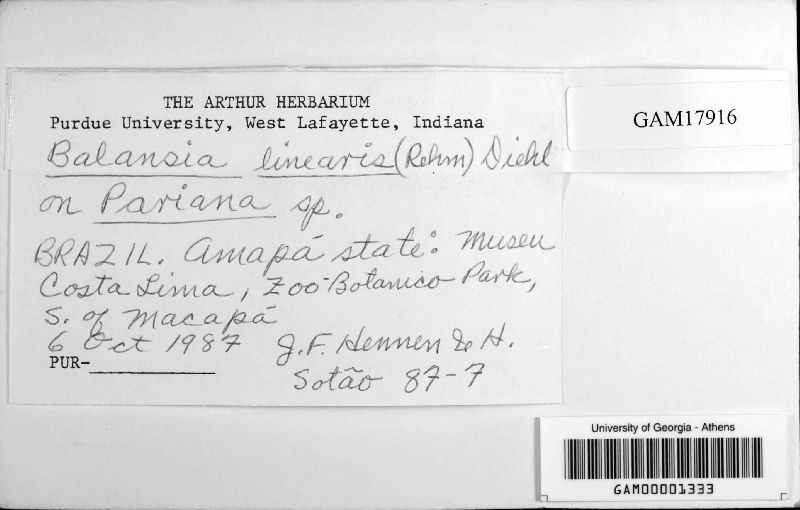 THE ARTHUR HERBARIUM
Purdue University, West Lafayette, Indiana
GAM17916
Balansia linearis (Rehm) Diehl
on Pariana sp.
BRAZIL. Amapá state: Museu
Costa Lima, Zoo-Botanico Park,
S. of Macapá
6 Oct 1987 J.F. Hennen & H.
PUR-
Sotão 87-7
University of Georgia - Athens
GAM00001333